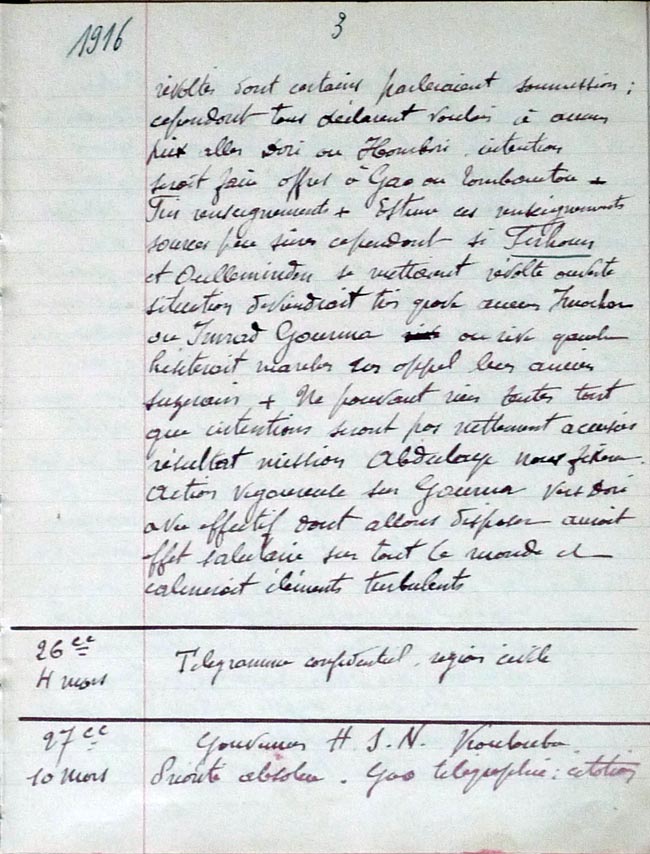 1916
3
révoltés dont certains parleraient soumission ;
cependant tous déclarent vouloir à aucun
prix aller Dori ou Hombori, intention
serait faire offres à Gao ou Tombouctou +
Fin renseignements + Estime ces renseignements
sources peu sûres cependant si Firhoun
et Oulleminden se mettaient révolte ouverte
situation deviendrait très grave aucun
ou Imrad Gourma ou rive gauche
hésiterait marcher sur appel leurs anciens
suzerains + Ne pouvant rien tenter tant
que intentions seront pas nettement accusées
résultat mission Abdulaye nous fixera.
Action vigoureuse sur Gourma vers Dori
avec effectif dont allons disposer aurait
effet salutaire sur tout le monde et
calmerait éléments turbulents
26 cc
4 mars
Télégramme confidentiel, région civile
27 cc
10 mars
Gouverneur H. S. N. Koulouba.
Priorité absolue. Gao télégraphie : citation